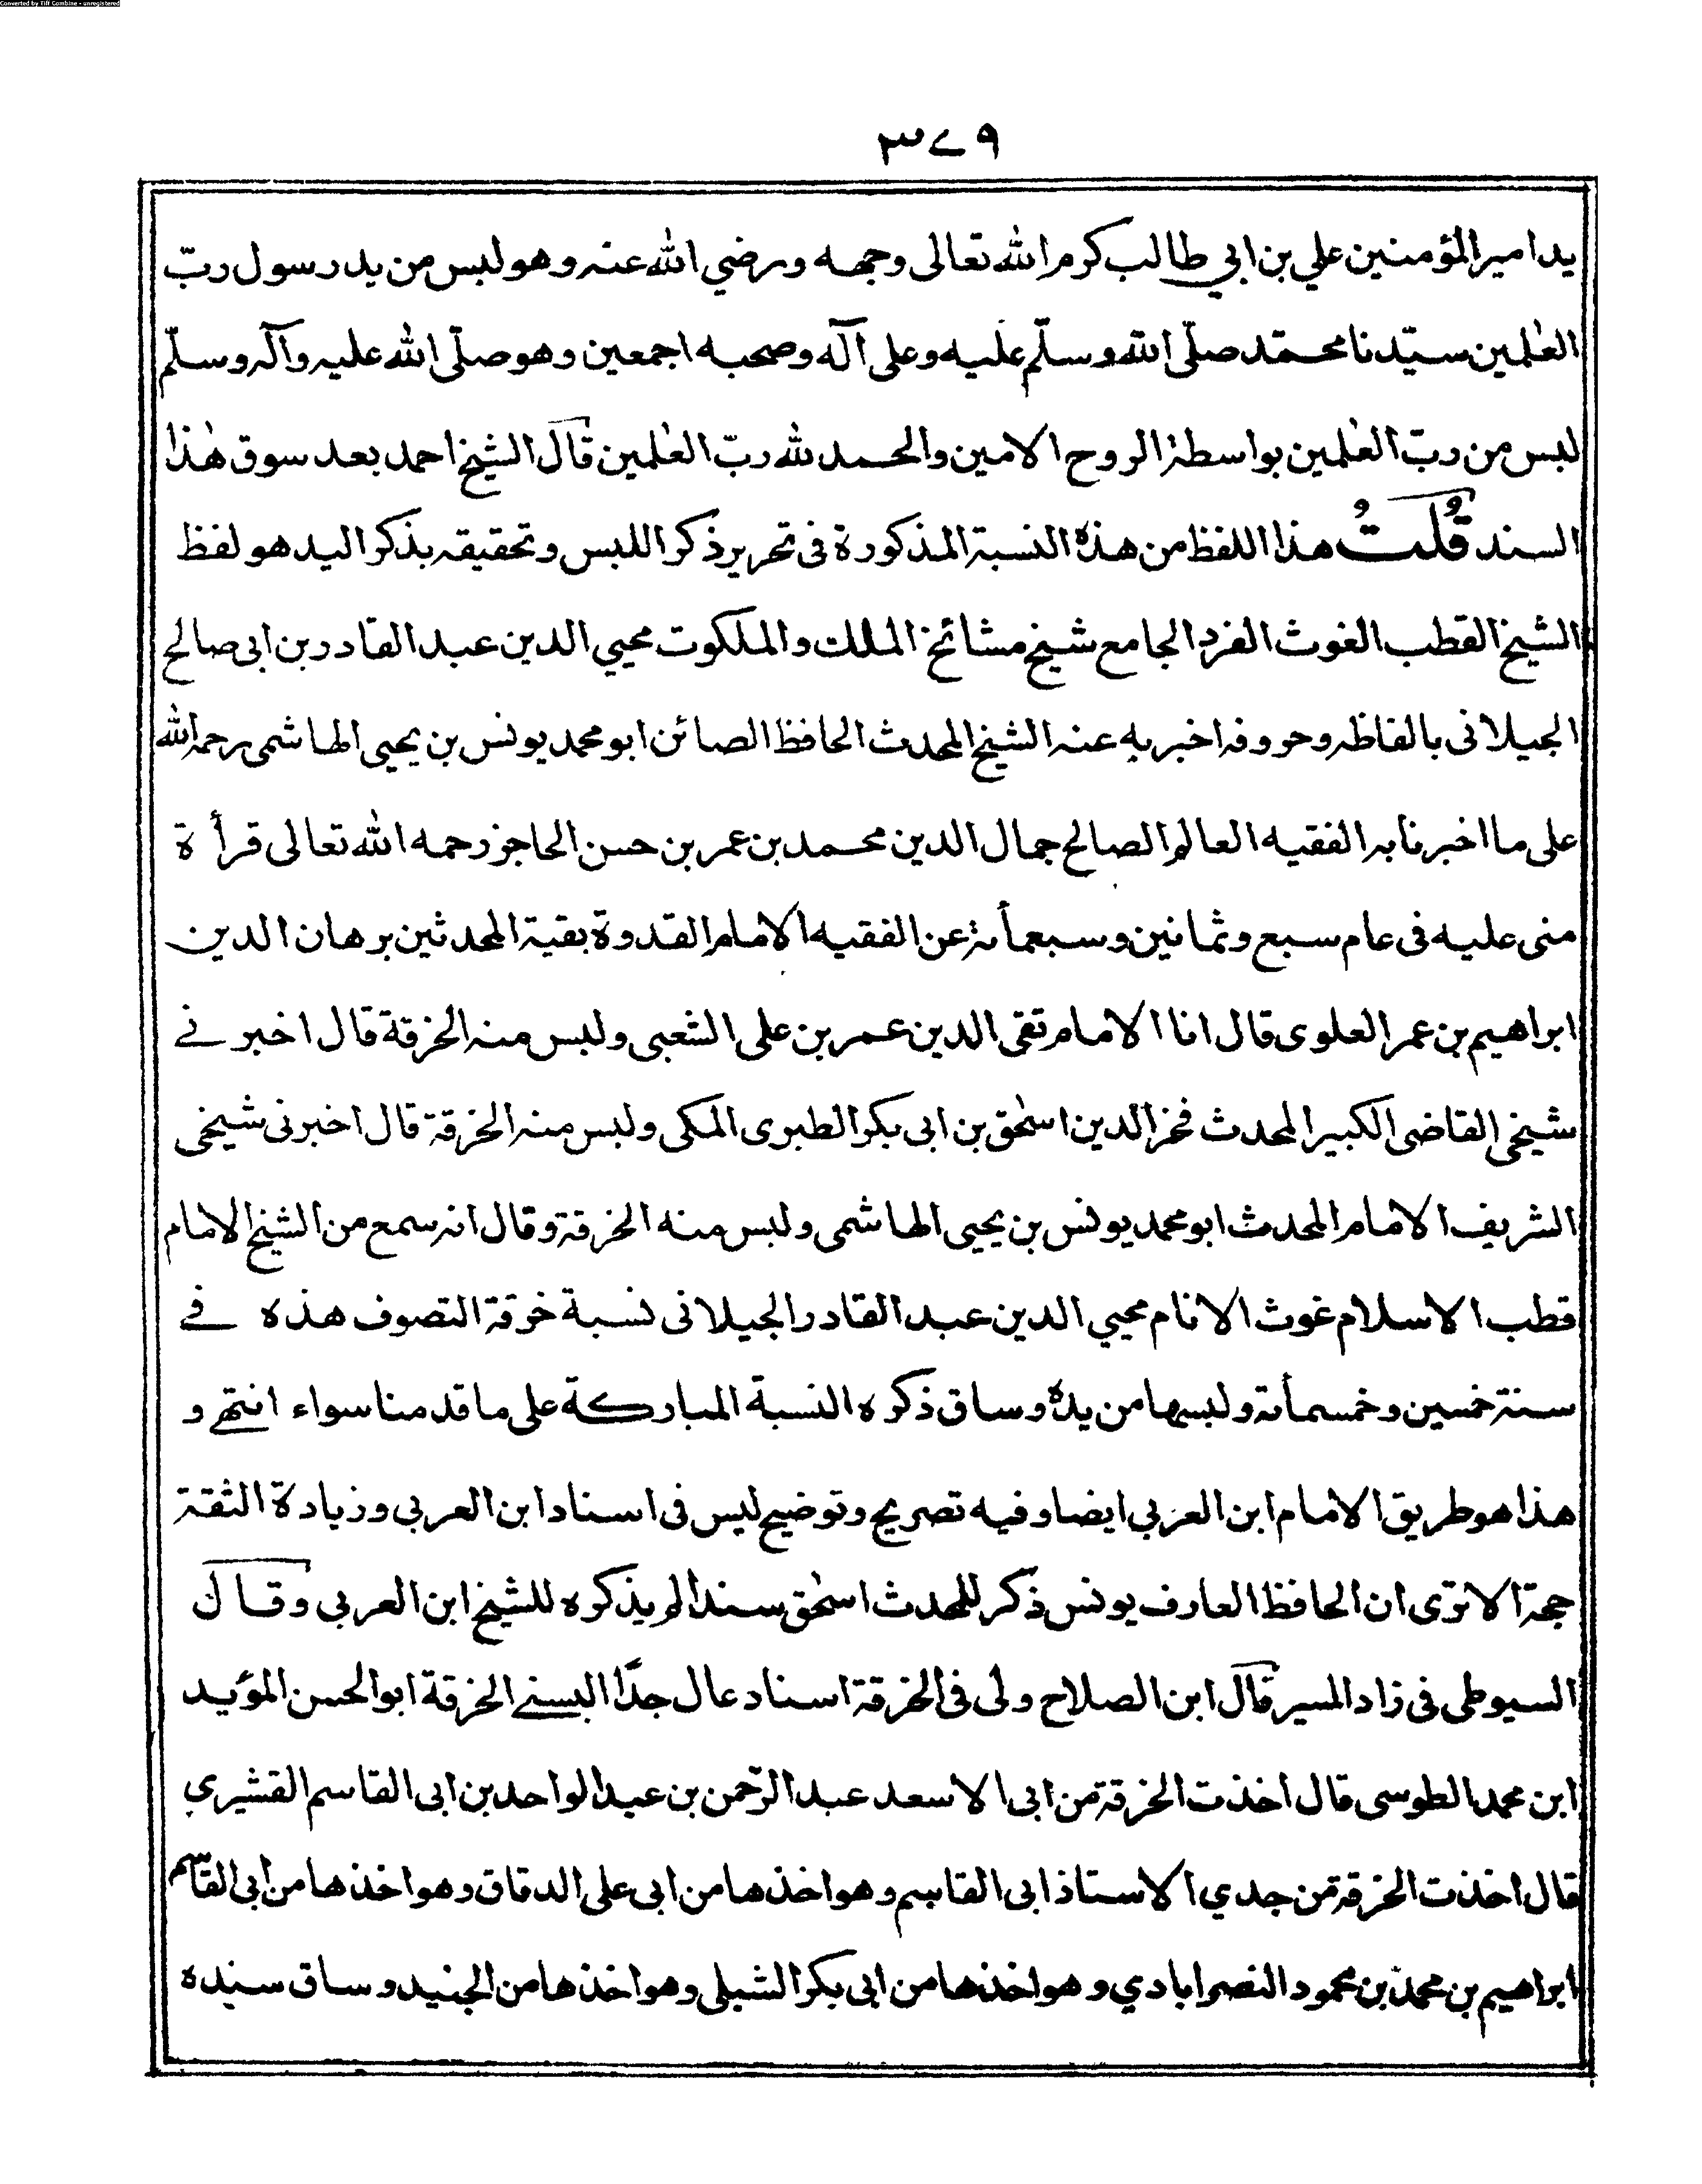 Converted by Tiff Combine - unregistered
٣٧٩
يد امير المؤمنين علي بن ابي طالب كرم الله تعالى وجهه ورضي الله عنه وهو لبس من يد رسول ربّ
العٰلمين سيّدنا محمّد صلّى الله وسلّم عليه وعلى آله وصحبه اجمعين وهو صلّى الله عليه وآله وسلّم
لبس من ربّ العٰلمين بواسطة الروح الامين والحمد لله ربّ العٰلمين قال الشيخ احمد بعد سوق هٰذا
السند قُلتُ هذا اللفظ من هذه النسبة المذكورة فى تحرير ذكر اللبس وتحقيقه بذكر اليد هو لفظ
الشيخ القطب الغوث الفرد الجامع شيخ مشائخ الملك والملكوت محيي الدين عبد القادر بن ابى صالح
الجيلانى بالفاظه وحروفه اخبر به عنه الشيخ المحدث الحافظ الصائن ابو محمد يونس بن يحيى الهاشمى رحمه الله
على ما اخبرنا به الفقيه العالم الصالح جمال الدين محمد بن عمر بن حسن الحاجز رحمه الله تعالى قرأة
منى عليه فى عام سبع وثمانين وسبعمأئة عن الفقيه الامام القدوة بقية المحدثين برهان الدين
ابراهيم بن عمر العلوى قال انا الامام تقى الدين عمر بن على الشعبى ولبس منه الخرقة قال اخبرنے
شيخى القاضى الكبير المحدث فخر الدين اسحٰق بن ابى بكر الطبرى المكى ولبس منه الخرقة قال اخبرنى شيخى
الشريف الامام المحدث ابو محمد يونس بن يحيى الهاشمى ولبس منه الخرقة وقال انه سمع من الشيخ الامام
قطب الاسلام غوث الانام محيي الدين عبد القادر الجيلانى نسبة خرقة التصوف هذه فے
سنة خمسين وخمسمأئة ولبسها من يده وساق ذكره النسبة المباركة على ما قدمنا سواء انتهے و
هذا هو طريق الامام ابن العربي ايضا وفيه تصريح وتوضيح ليس فى اسناد ابن العربي وزيادة الثقة
حجة الا ترى ان الحافظ العارف يونس ذكر للمحدث اسحٰق سندا لم يذكره للشيخ ابن العربي وقال
السيوطى فى زاد المسير قال ابن الصلاح ولى فى الخرقة اسناد عال جدًا البسنے الخرقة ابو الحسن المؤيد
ابن محمد الطوسى قال اخذت الخرقة من ابى الاسعد عبد الرّحمن بن عبد الواحد بن ابى القاسم القشيري
قال اخذت الخرقة من جدي الاستاذ ابى القاسم وهو اخذها من ابى على الدقاق وهو اخذها من ابى القاسم
ابراهيم بن محمد بن محمود النصرابادي وهو اخذها من ابى بكر الشبلى وهو اخذها من الجنيد وساق سنده